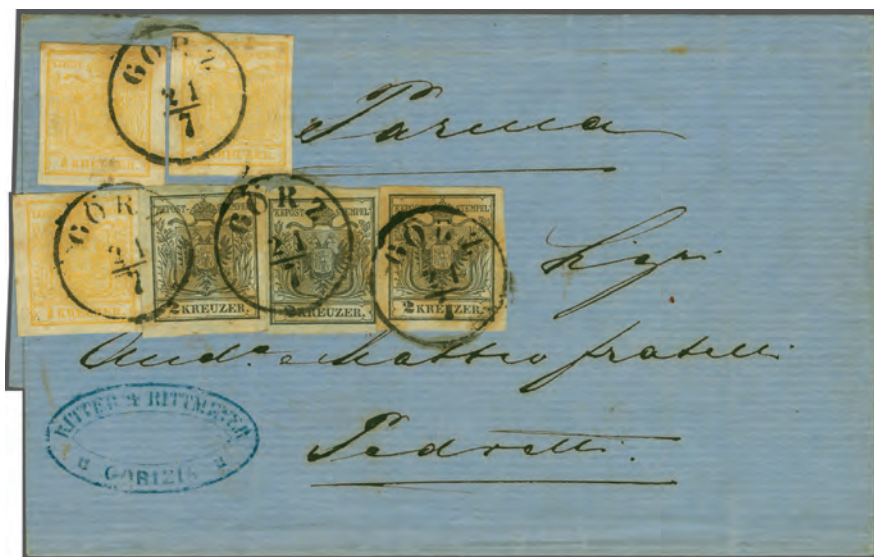 GÖRZ
21/7
1 KREUZER.
KREUZER.
Parma
GÖRZ
21/7
KREUZER.
KKPOST-STEMPEL
2 KREUZER.
GÖRZ
21/7
KKPOST-STEMPEL
2 KREUZER.
KKPOST-STEMPEL
2 KREUZER.
GÖRZ
Sigri
Matteo fratelli
Pedretti.
RITTER & RITTMEYER
GORIZIA